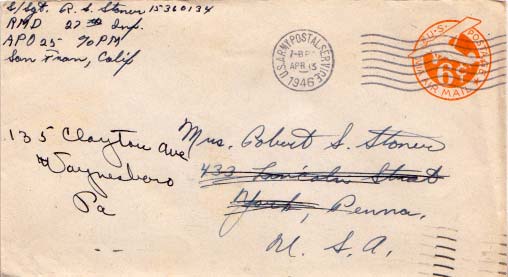 S/Sgt. R. S. Stoner 15360134
RMD 27th Inf.
APO 25 % PM
San Fran, Calif
U.S. ARMY POSTAL SERVICE
APR 13
1946
U.S. POSTAGE
6¢
VIA AIR MAIL
135 Clayton Ave
Waynesboro
Pa
Mrs. Robert S. Stoner
433 Lincoln Street
York, Penna.
U. S. A.